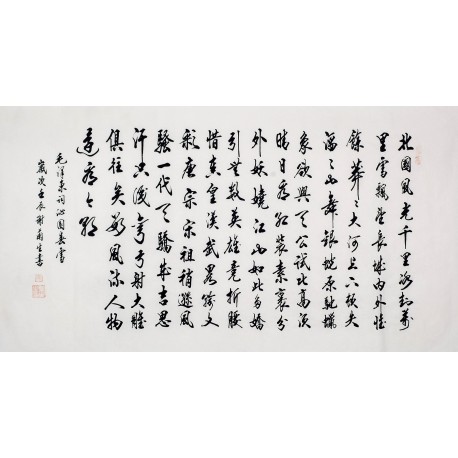 北國風光千里冰封萬
里雪飄望長城内外惟
餘莽〻大河上下頓失
滔〻山舞銀蛇原馳蠟
象欲與天公試比高須
晴日看紅裝素裹分
外妖嬈江山如此多嬌
引無數英雄竟折腰
惜秦皇漢武略輸文
彩唐宗宋祖稍遜風
騷一代天驕成吉思
汗只識彎弓射大雕
俱往矣數風流人物
還看今朝
毛澤東詞沁園春雪
歲次壬辰生書